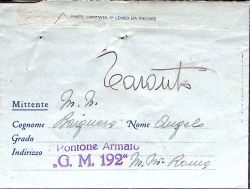 PARTE GOMMATA E LEMBO DA PIEGARE
Taranto
Mittente M. N.
Cognome Nome Angelo
Grado
Indirizzo Pontone Armato
„G. M. 192" M. M. Roma